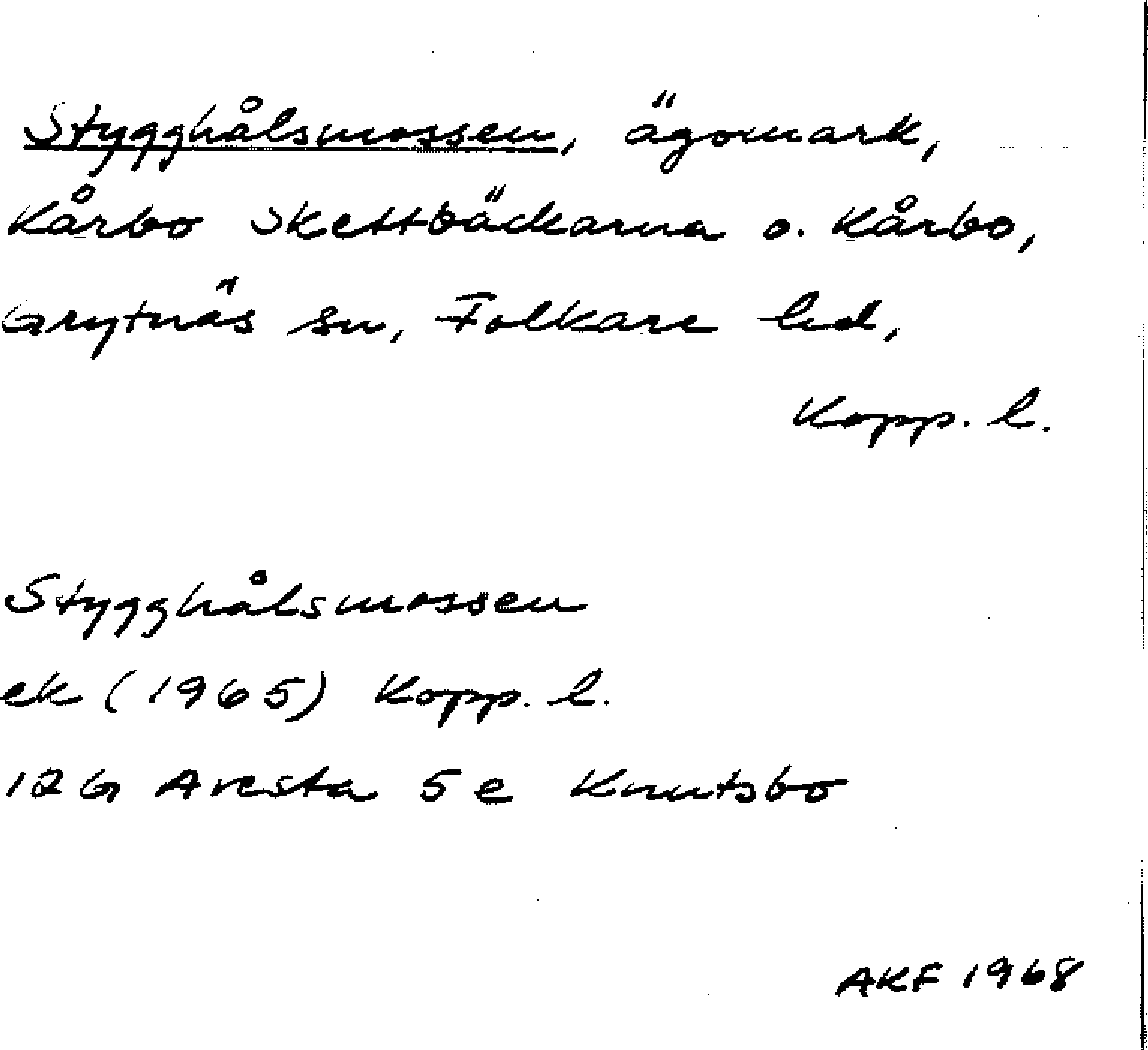 Stygghålsmossen, ägomark,
Kårbo Skettbäckarna o. Kårbo,
Grytnäs sn, Folkare hd,
Kopp. l.
Stygghålsmossen
ek (1965) Kopp. l.
12G Avesta 5e Knutsbo
AKF 1968